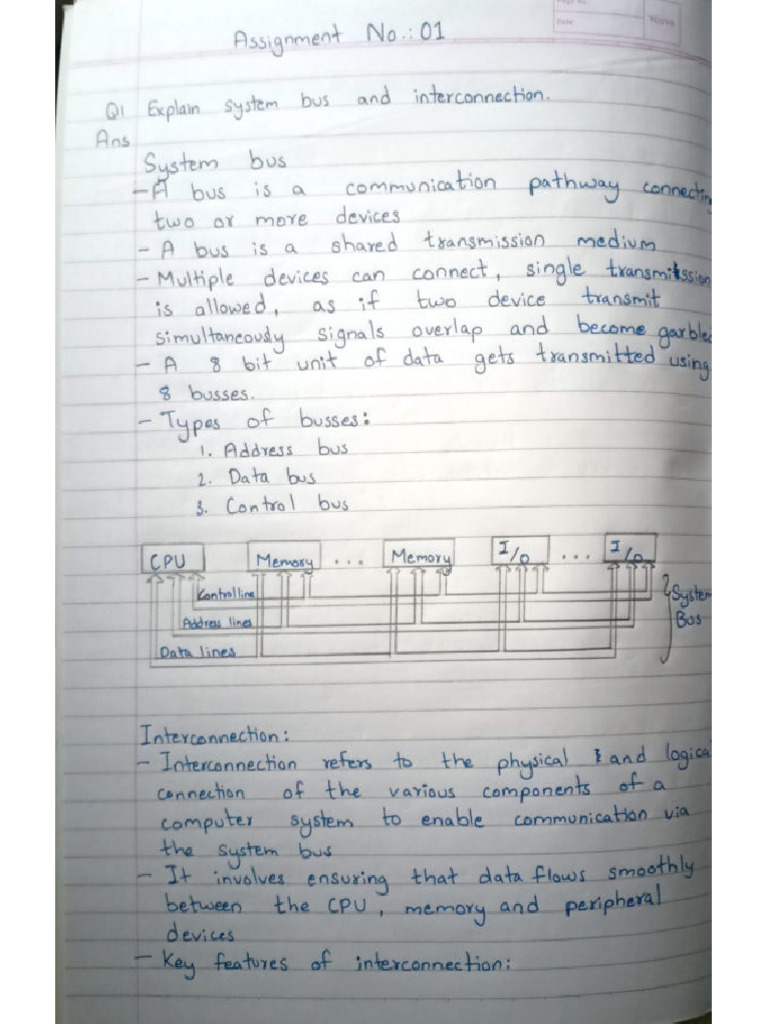 Assignment No.: 01
Q1 Explain system bus and interconnection.
Ans
System bus
- A bus is a communication pathway connectin
two or more devices
- A bus is a shared transmission medium
- Multiple devices can connect, single transmission
is allowed, as if two device transmit
simultaneously signals overlap and become garbled
- A 8 bit unit of data gets transmitted using
8 busses.
- Types of busses:
1. Address bus
2. Data bus
3. Control bus
CPU Memory ... Memory I/O ... I/O
Control line
System
Address lines
Bus
Data lines
Interconnection:
- Interconnection refers to the physical and logical
connection of the various components of a
computer system to enable communication via
the system bus
- It involves ensuring that data flows smoothly
between the CPU, memory and peripheral
devices
- Key features of interconnection: